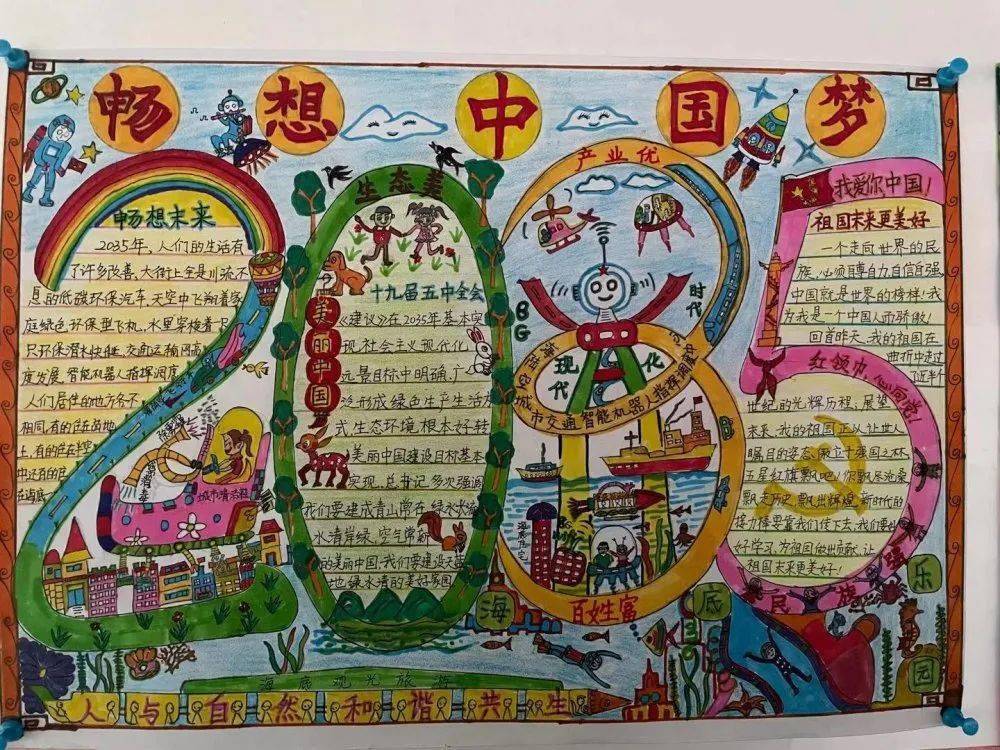 畅想中国梦
畅想未来
2035年，人们的生活有
了许多改善，大街上全是川流不
息的低碳环保汽车，天空中飞翔着家
庭绿色环保型飞机，水里穿梭着
只环保潜水快艇，交通运输网高
度发展，智能机器人指挥调度
人们居住的地方各不
相同，有的住在陆地
上，有的住在半空
中，还有的住
在海底
消毒
城市清洁程
生态美
美丽中国
十九届五中全会
《建议》在2035年基本实
现社会主义现代化
远景目标中明确，广
泛形成绿色生产生活方
式生态环境根本好转
美丽中国建设目标基本
实现，总书记多次强调
我们要建成青山常在，绿水长流
水清岸绿，空气常新
的美丽中国，我们要建设天蓝
地绿水清的美好家园
产业优
8G
时代
现代化
城市交通智能机器人指挥调度
百姓富
我爱你中国！
祖国未来更美好
一个走向世界的民
族，必须自尊自力自信自强。
中国就是世界的榜样！我
为我是一个中国人而骄傲！
回首昨天，我的祖国在
曲折中走过
了近半个
世纪的光辉历程；展望
未来，我的祖国正以让世人
瞩目的姿态屹立于强国之林
五星红旗飘吧！你飘尽沧桑
飘走历史，飘出辉煌，新时代的
接力棒要靠我们传下去，我们要
好好学习，为祖国做出贡献，让
祖国未来更美好！
红领巾心向党！
民族强
海底
乐园
海底观光旅游
人与自然和谐共生